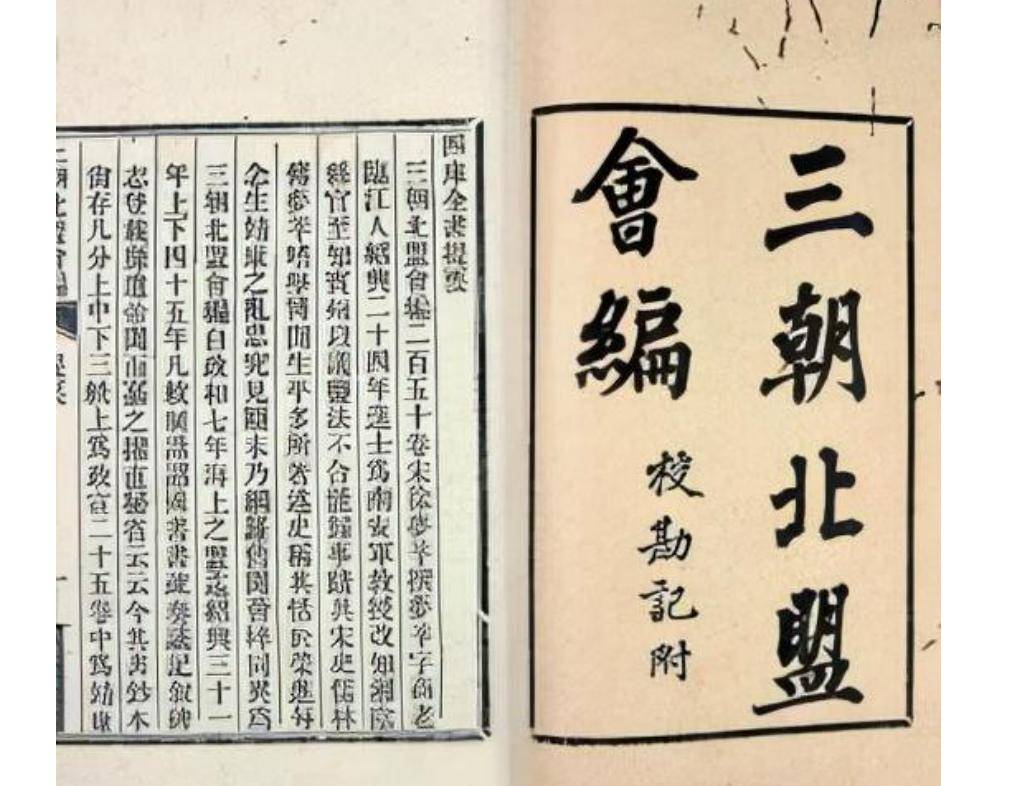 三朝北盟
會編
校勘記附
四庫全書提要
三朝北盟會編二百五十卷宋徐夢莘撰夢莘字商老
臨江人紹興二十四年進士爲南安軍教授改知湘陰
縣官至知賓州以議鹽法不合罷歸事蹟具宋史儒林
傳夢莘嗜學博聞生平多所著述史稱其恬於榮進每
念生靖康之亂思究見顚末乃網羅舊聞薈稡同異爲
三朝北盟會編自政和七年海上之盟迄紹興三十一
年上下四十五年凡敕制誥詔國書書疏奏議記敘碑
志登載靡遺帝聞而嘉之擢直秘省云云今其書鈔本
尚存凡分上中下三帙上爲政宣二十五卷中爲靖康
三朝北盟會編
提要
一